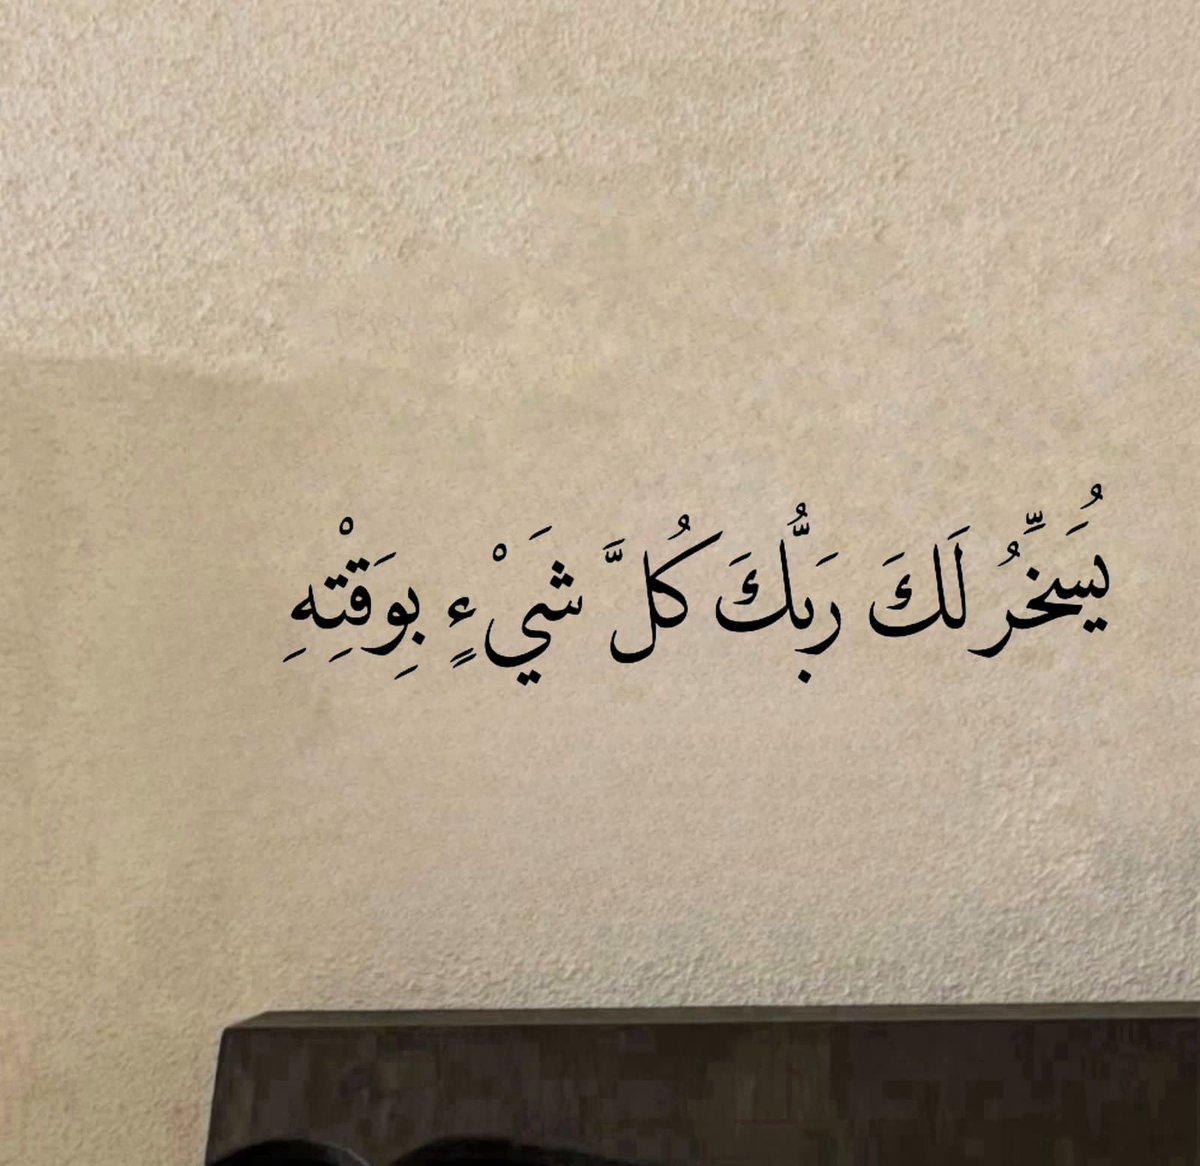 يُسَخِّرُ لَكَ رَبُّكَ كُلَّ شَيْءٍ بِوَقْتِهِ